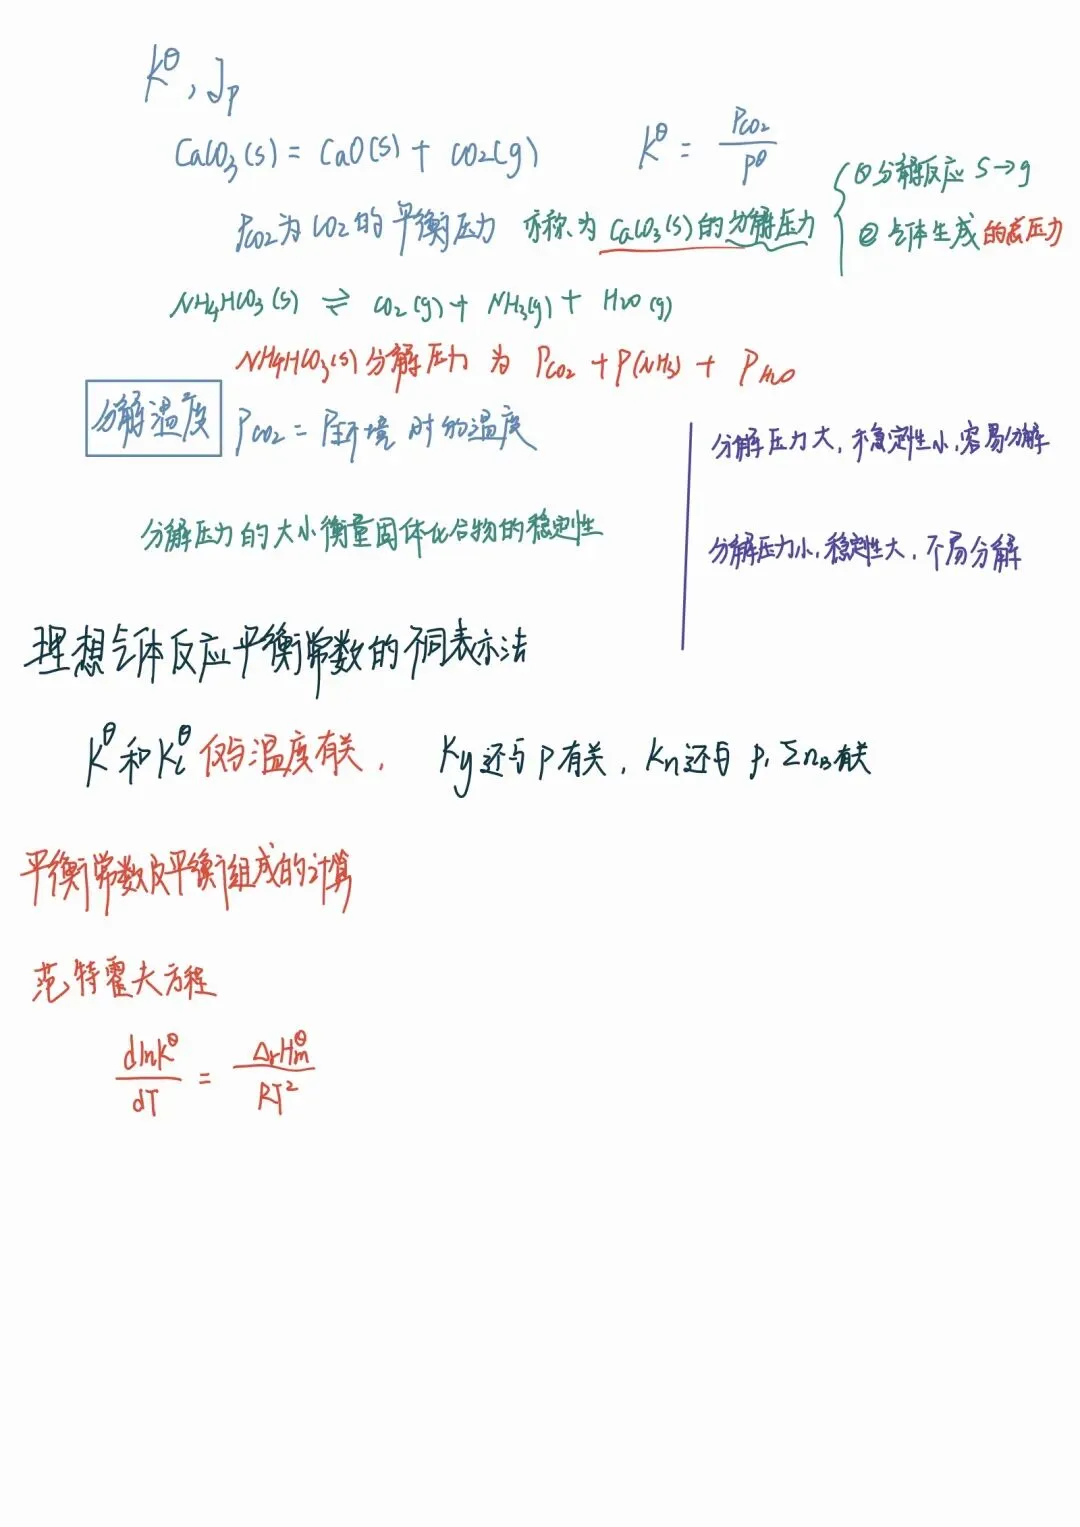 K^θ, J_p
CaCO3(s) = CaO(s) + CO2(g)  K^θ = P_CO2 / P^θ
① 分解反应 S→g
P_CO2为CO2的平衡压力 亦称为CaCO3(s)的分解压力
② 气体生成的总压力
NH4HCO3(s) ⇌ CO2(g) + NH3(g) + H2O(g)
NH4HCO3(s)分解压力为 P_CO2 + P(NH3) + P_H2O
分解温度 P_CO2 = P环境 时的温度
分解压力大,稳定性小,容易分解
分解压力的大小衡量固体化合物的稳定性
分解压力小,稳定性大,不易分解
理想气体反应平衡常数的不同表示法
K^θ和K_c^θ仅与温度有关, Ky还与p有关, Kn还与p,Σn_B有关
平衡常数及平衡组成的计算
范特霍夫方程
dlnK^θ / dT = Δ_rH_m^θ / RT²